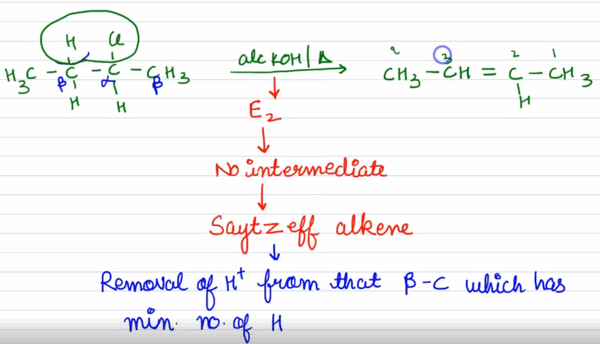 H Cl
H₃C - C - C - CH₃
β α β
H H
alc KOH/Δ
4 3 2 1
CH₃ - CH = C - CH₃
H
E₂
No intermediate
Saytzeff alkene
Removal of H⁺ from that β-C which has
min. no. of H